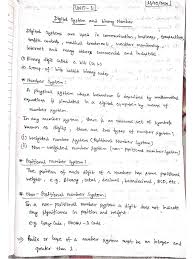 UNIT-1
Digital System and Binary Number
Digital systems are used in communication, business, transportation
traffic control, medical treatment, weather monitoring,
internet and many other commercial and industrial.
(i) Binary digit called a bit (0, 1)
(ii) Group of bits called binary codes.
* Number System :
A physical system whose behaviour is described by mathematical
equations is
In any number system, there is an ordered set of symbols
known as digits. There are two types of number system,
(i) Weighted Number System (Positional Number System)
(ii) Non-weighted Number System (non-positional number system)
* Positional Number System :
The position of each digit of a number has some positional
weight. e.g. Binary, octal, decimal, hexadecimal, BCD, etc.
* Non-Positional Number System :
In a non-positional number system a digit does not indicate
any significance in position and weight.
e.g. Gray Code, excess-3 code.
Radix or base of a number system must be an integer and
greater than 1.